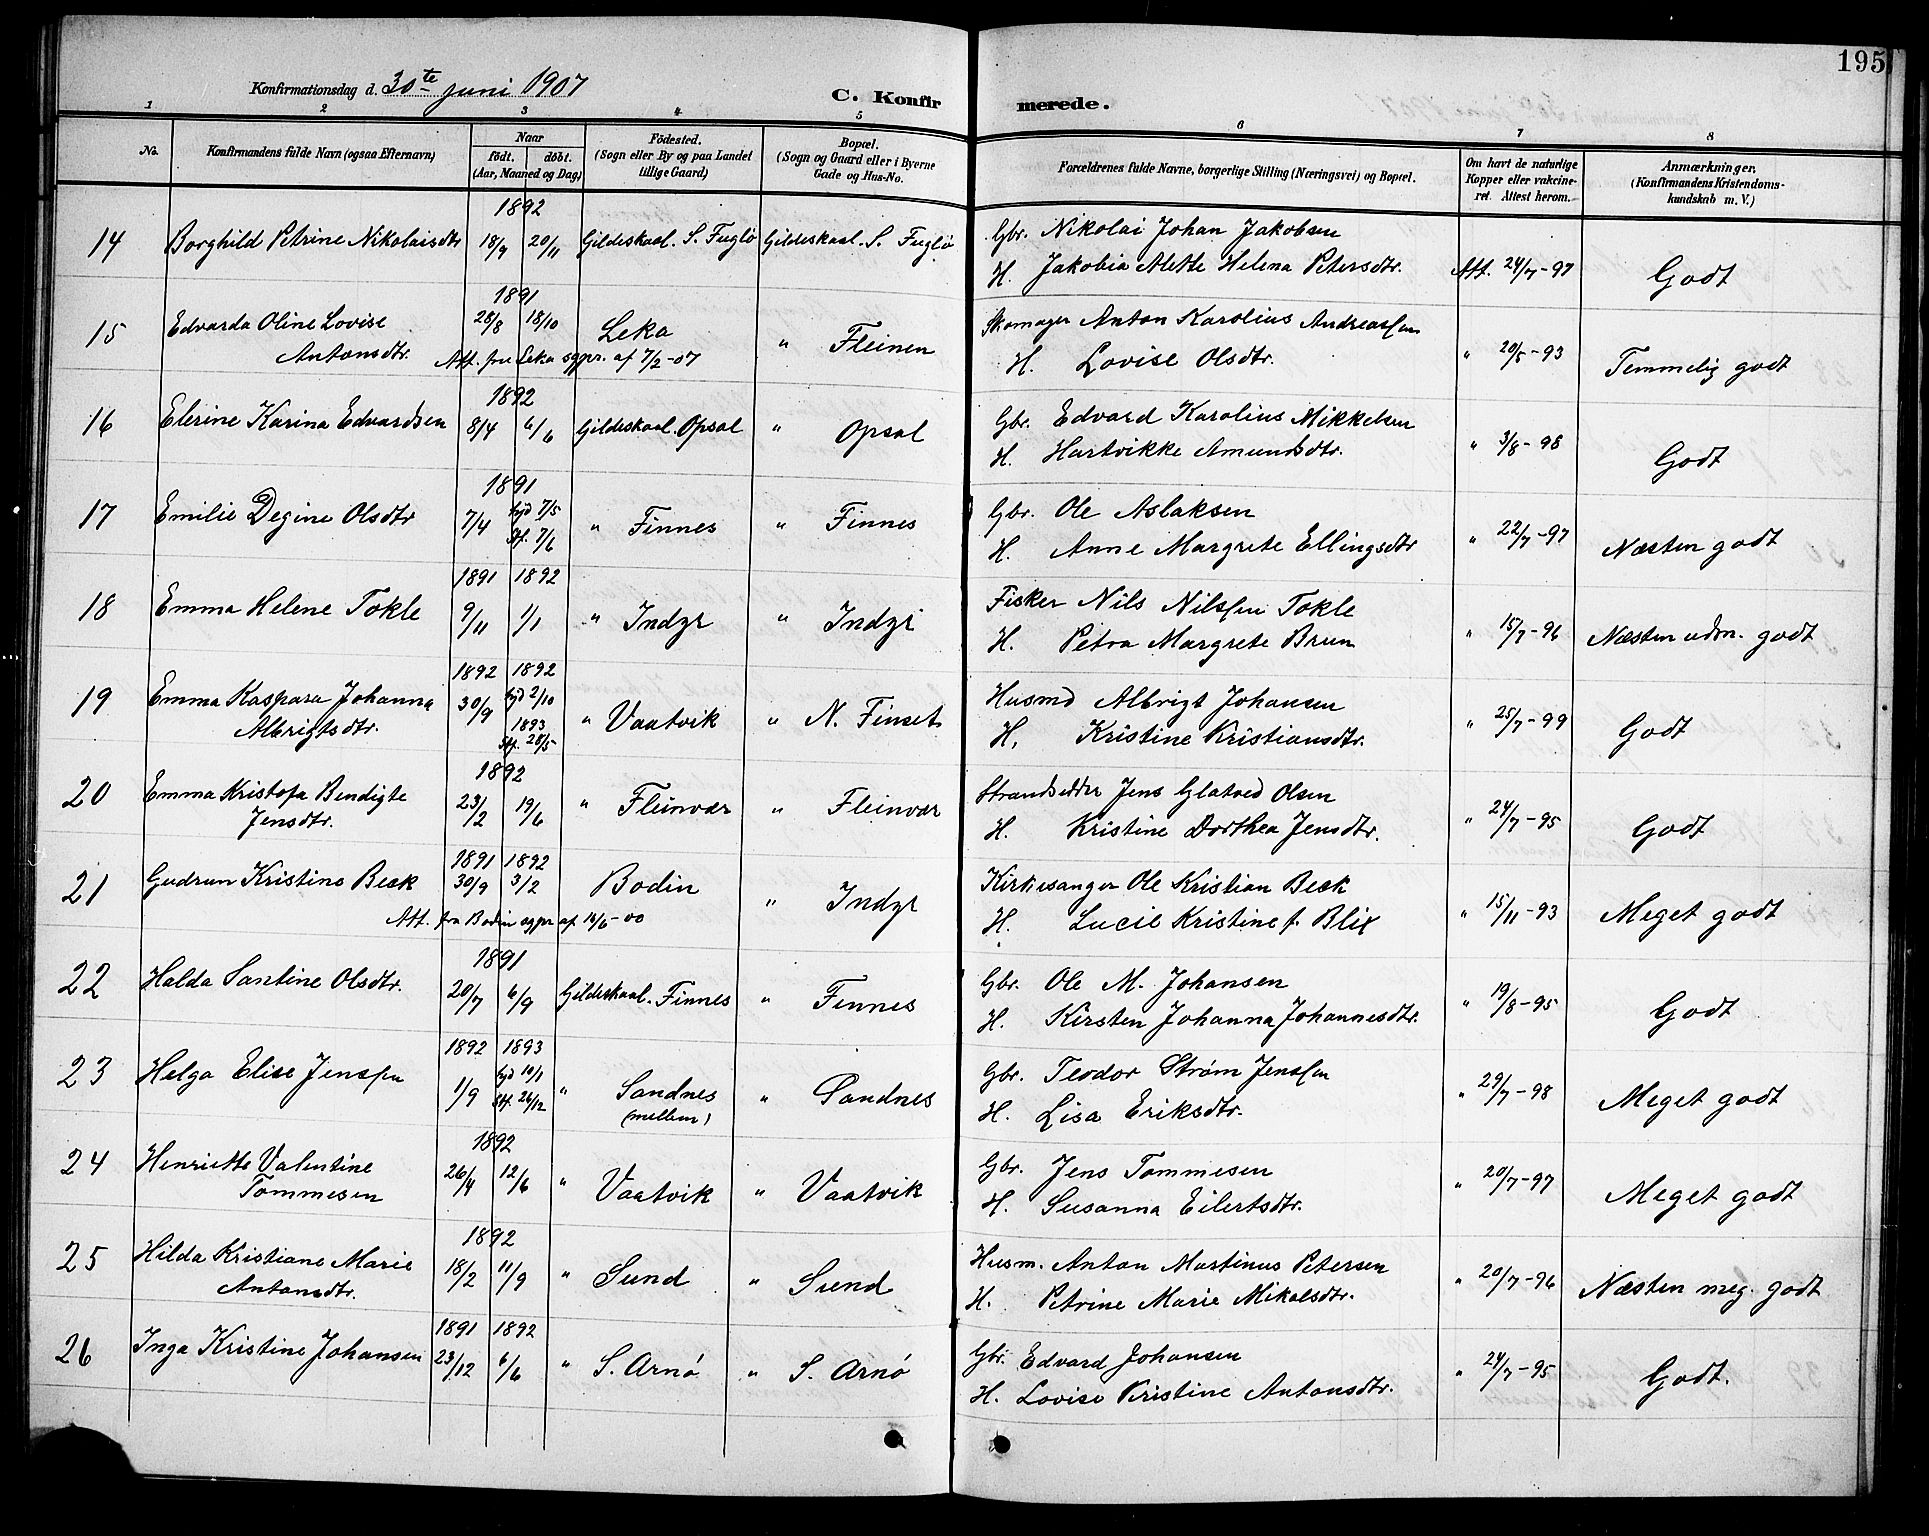 195
Konfirmationsdag d. 30te juni 1907
C. Konfirmerede.
1 2 3 4 5 6 7 8
No.
Konfirmandens fulde Navn (ogsaa Efternavn)
Naar
født. døbt.
(Aar, Maaned og Dag)
Fødested.
(Sogn eller By og paa Landet
tillige Gaard)
Bopæl.
(Sogn og Gaard eller i Byerne
Gade og Hus-No.
Forældrenes fulde Navne, borgerlige Stilling (Næringsvei) og Bopæl.
Om havt de naturlige
Kopper eller vakcine-
ret. Attest herom.
Anmærkninger.
(Konfirmandens Kristendoms-
kundskab m. V.)
1892
14 Borghild Petrine Nikolaisdtr 18/9 20/11 Gildeskaal. S. Fuglø Gildeskaal. S. Fuglø Gbr. Nikolai Johan Jakobsen
H. Jakobia Mette Helena Petersdtr. Att. 24/7-97 Godt
1891
15 Edvarda Oline Lovise 28/8 18/10 Leka " Fleinen Skomager Anton Karolius Andreassen
Antonsdtr. Att. fra Leka sgpr. af 7/2-07 H. Lovise Olsdtr. " 20/5-93 Temmelig godt
1892
16 Elerine Karina Edvardsen 8/4 6/6 Gildeskaal. Opsal " Opsal Gbr. Edvard Karolius Mikkelsen
H. Hartvikke Amundsdtr. " 3/8-98 Godt
1891
17 Emilie Degine Olsdtr 7/4 hjd 7/5 " Finnes " Finnes Gbr. Ole Aslaksen
Stf. 7/6 H. Anne Margrete Ellingsdtr " 22/7-97 Næsten godt
1891 1892
18 Emma Helene Tokle 9/11 1/1 " Indyr " Indyr Fisker Nils Nilssen Tokle
H. Petra Margrete Brun " 15/7-96 Næsten udm. godt
1892 1892
19 Emma Kaspara Johanna 30/9 hjd 2/10 " Vaatvik " N. Finset Husmd Albrigt Johansen
Albrigtsdtr. 1893 Stf. 28/5 H. Kristine Kristiansdtr. " 25/7-99 Godt
1892
20 Emma Kristofa Bendigte 23/2 19/6 " Fleinvær " Fleinvær Strandsidder Jens Glatved Olsen
Jensdtr. H. Kristine Dorthea Jensdtr. " 24/7-95 Godt
1891 1892
21 Gudrun Kristine Beck 30/9 3/2 Bodin " Indyr Kirkesanger Ole Kristian Beck
Att. fra Bodin sgpr af 16/6-00 H. Lucie Kristine f. Blix " 15/11-93 Meget godt
1891
22 Halda Santine Olsdtr. 20/7 6/9 Gildeskaal. Finnes " Finnes Gbr. Ole M. Johansen
H. Kirsten Johanna Johannesdtr. " 19/8-95 Godt
1892 1893
23 Helga Elise Jenssen 1/9 hjd 10/1 " Sandnes " Sandnes Gbr. Teodor Strøm Jenssen
Stf. 26/12 (mellem) H. Lisa Eriksdtr. " 29/7-98 Meget godt
1892
24 Henriette Valentine 26/4 12/6 " Vaatvik " Vaatvik Gbr. Jens Tommesen
Tommesen H. Susanna Eilertsdtr. " 20/7-97 Meget godt
1892
25 Hilda Kristiane Marie 18/2 11/9 " Sund " Sund Husm. Anton Martinus Petersen
Antonsdtr. H. Petrine Marie Mikalsdtr. " 20/7-96 Næsten meg. godt
1891 1892
26 Inga Kristine Johansen 23/12 6/6 " S. Arnø " S. Arnø Gbr. Edvard Johansen
H. Lovise Kristine Antonsdtr. " 24/7-95 Godt.